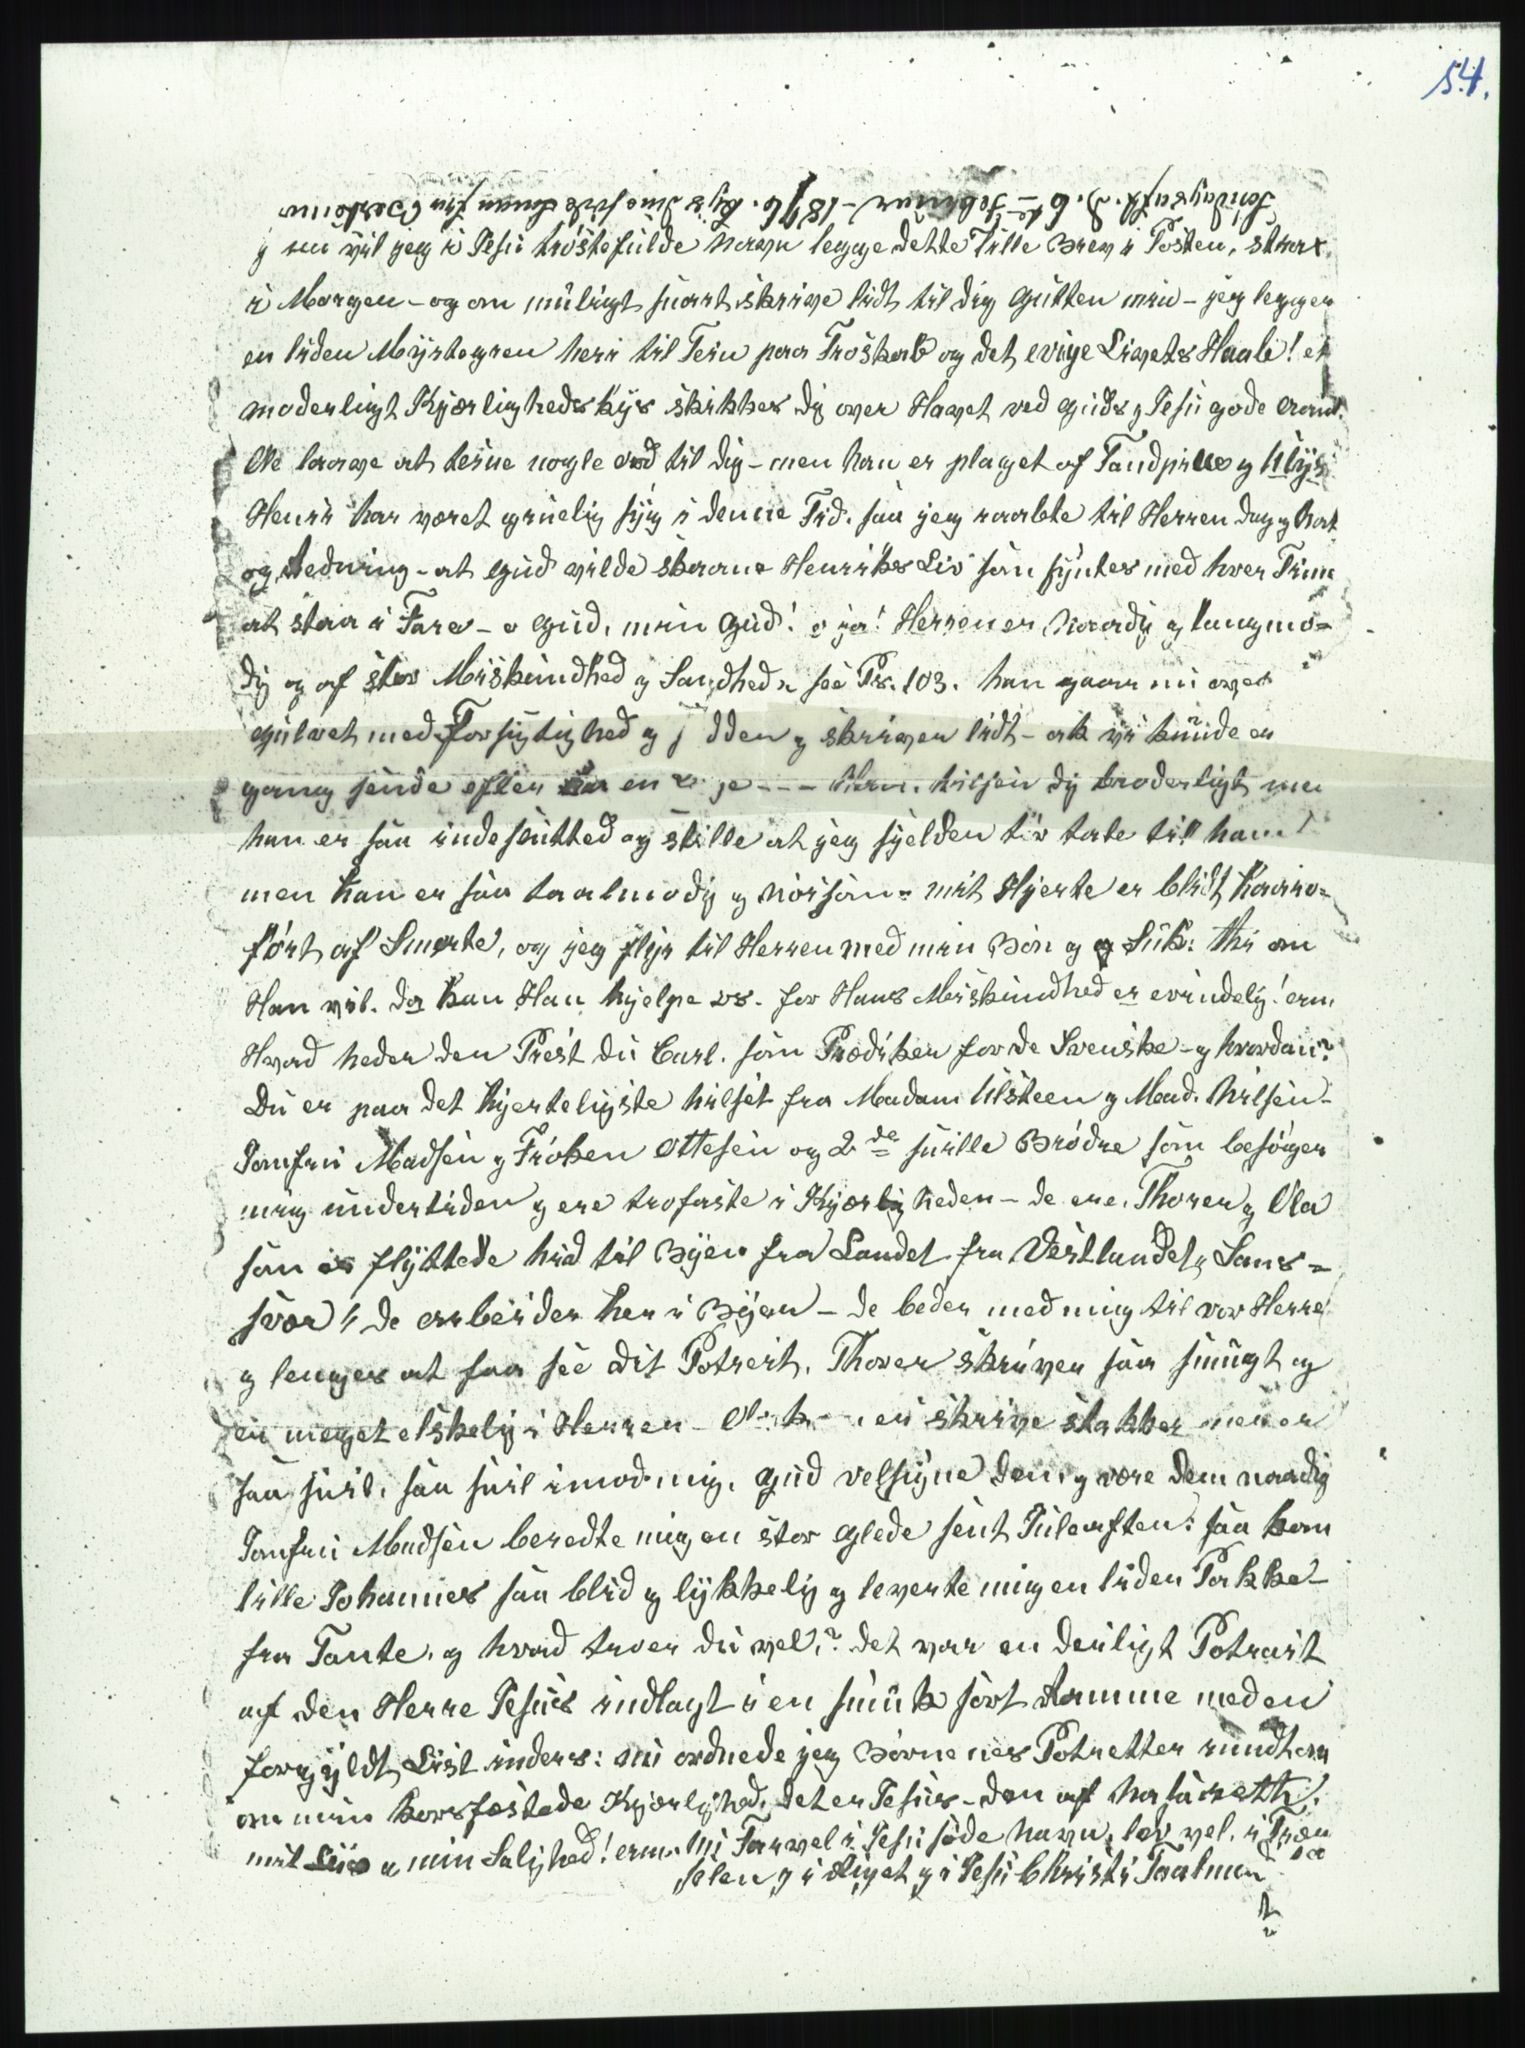 54.
Søndagsaft. d. 6te Februar - 1876.
g nu vil jeg i Jesu trøstefulde Navn legge dette lille Brev i Posten, strax
i Morgen - og om muligt snart skrive lidt til dig Gutten min - jeg legger
en liden Myrtegren heri til Tein paa Troskab og det evige Livets Haab! et
moderligt Kjærligheds Kys skikkes dig over Havet ved Guds g Jesu gode Aand.
Ole lavve at teine nogle ord til dig - men han er plaget af Tandpine g
Henrik har været gruelig syg i denne Tid. saa jeg raabte til Herren dag g Nat
og Redning - at Gud vilde skaane Henriks Liv som syntes med hver Time
at staa i Fare - o Gud, min Gud! o ja! Herren er Naadig g langmo=
dig og af stor Miskundhed g Sandhed see Ps. 103. han gaar nu over
Gulvet med Forsigtighed g dden g skriver lidt - ak vi kunde en
gang sende efter en - - - tilsen dig broderligt men
han er saa indeslutted og stille at jeg sjelden tør tale til ham
men han er saa taalmodig g nøisom - mit Hjerte er blidt
ført af Smerte, og jeg flyr til Herren med min Bøn g Suk: thi om
Han vil. da kan Han hjelpe os. for Hans Miskundhed er evindelig!
Hvad heder den Prest du Carl. som Prædiker for de Svenske - g hvordan?
Du er paa det hjerteligste hilset fra Madam Ulsteen g Mad. Nilsen -
Jomfru Madsen g Frøken Ottesen og 2de snille Brødre som besøger
mig undertiden g ere trofaste i Kjærligheden - de ere. Thorer g Ola
som er flyttede hid til Byen fra Landet fra Vestlandet, Sans=
svær de arbeider her i Byen - de beder med mig til vor Herre
g lenges at faa see dit Potreit. Thorer skriver saa smugt og
en meget elskelig i Herren - ei skrive stakker men er
saa snil. saa snil imod mig. Gud velsigne dem, g være dem naadig
Jomfru Madsen beredte mig en stor Glede sent Juleaften: saa kom
lille Johannes saa blid g lykkelig g leverte mig en liden Pakke -
fra Tante. g hvad troer du vel,? det var en deiligt Potrait
af den Herre Jesus indlagt i en smuk sort Ramme med en
forgyldt List inders: nu ordnede jeg Børnenes Potretter rundt om
om min korsfestede Kjærlighed. det er Jesus - den af Nasareth.
mit Liv g min Salighed! Nu Farvel i Jesu søde Navn. lev vel. i Træn
selen g i Riget g i Jesu Christi Taalmod